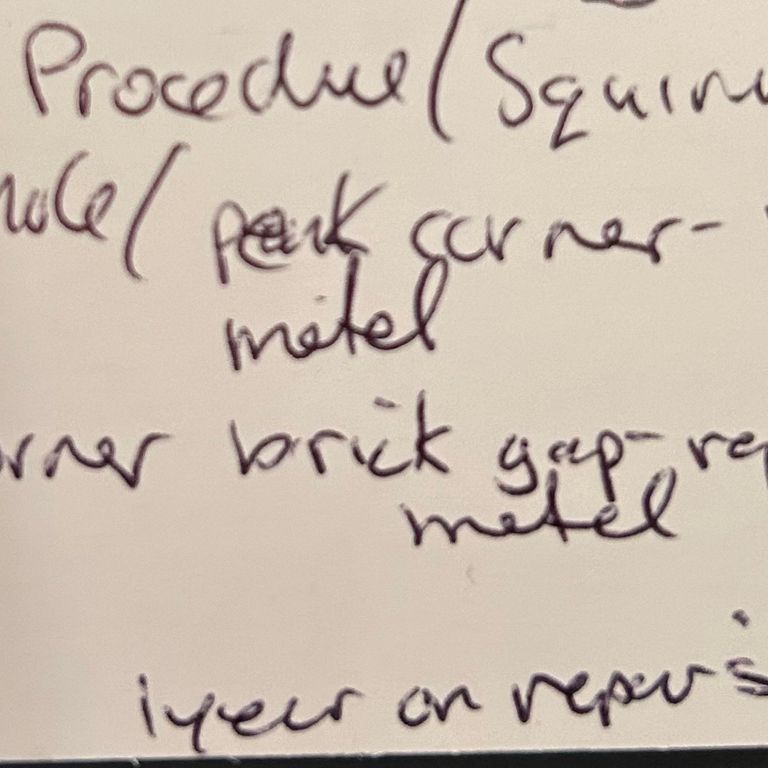 Procedure / Squirr
hole / peak corner-
metal
orner brick gap- rep
metal
1 year on repairs